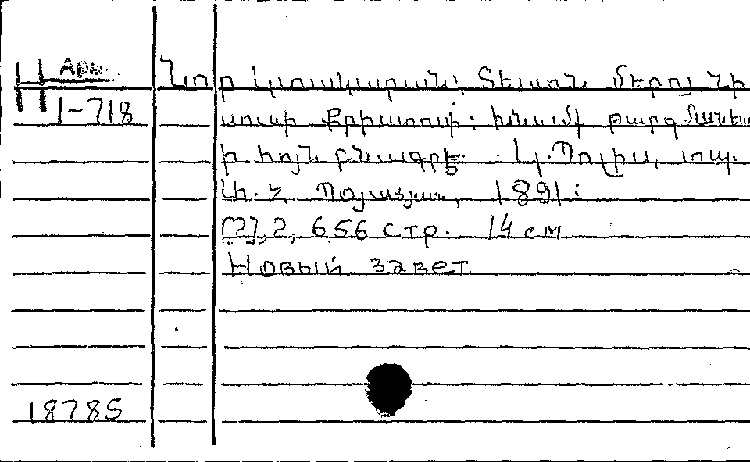 Арм.
H
1-718
Նոր կտակարան: Տեառն մերոյ Յի
սուսի Քրիստոսի: խնամf թարգմանեալ
ի հոյն բնագրէ. Կ.Պոլիս, տպ.
Ա. Հ. Պօյաճյան, 1891:
[2], 2, 656 стр. 14 см
Новый завет
18785